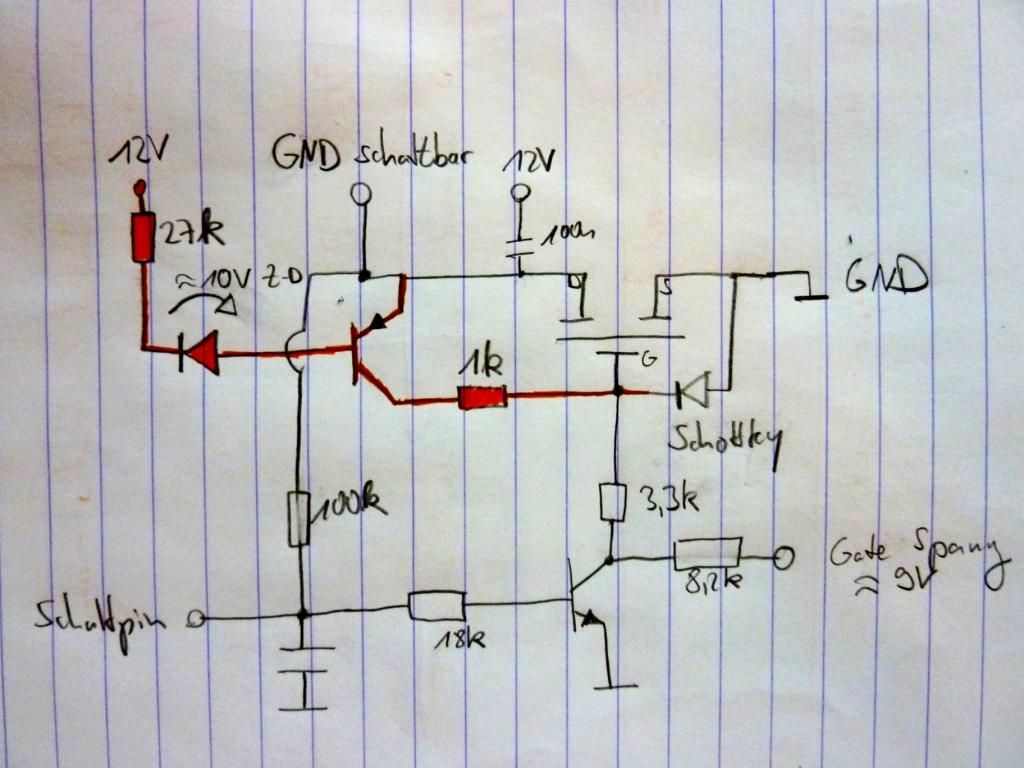 12V
GND schaltbar
12V
27k
100n
≈10V Z-D
D
S
GND
G
1k
Schottky
100k
3,3k
8,2k
Gate Spanng
≈ 9V
Schaltpin
18k